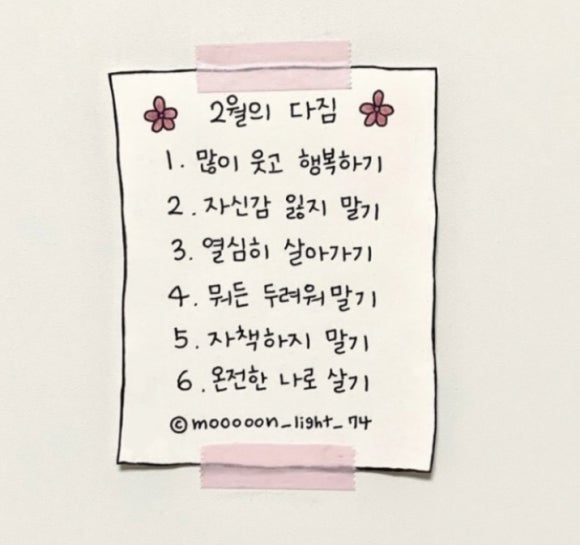 2월의 다짐
1. 많이 웃고 행복하기
2. 자신감 잃지 말기
3. 열심히 살아가기
4. 뭐든 두려워말기
5. 자책하지 말기
6. 온전한 나로 살기
©mooooon_light_74